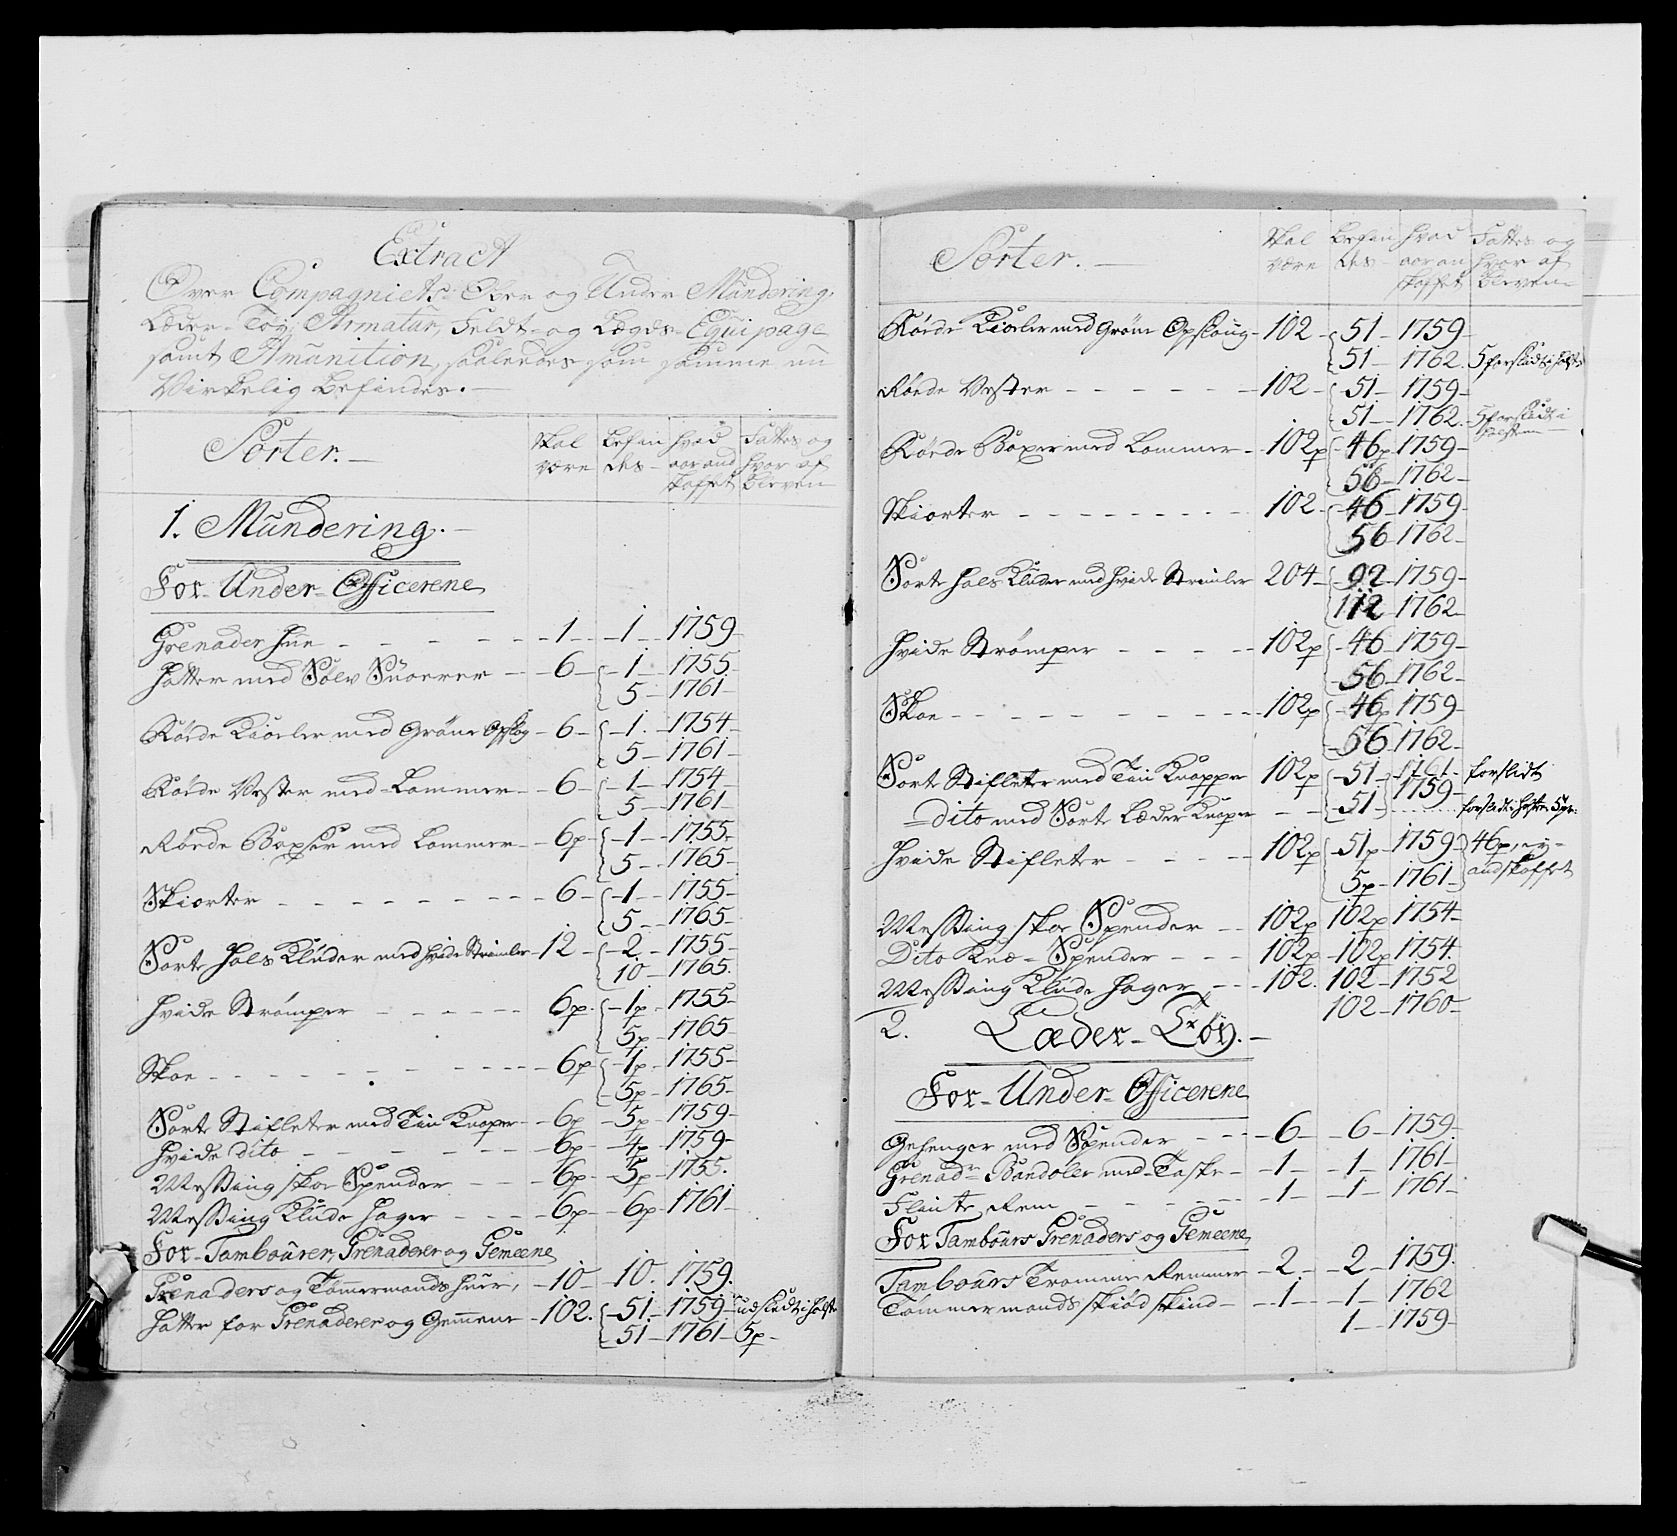 Extract
Over Compagniets Ober og Under Mundering,
Læder-Toy, Armatur, Feldt- og Lægds-Equipage
samt Amunition, saaledes som samme nu
Virkelig befindes.
Sorter. Skal være Befindes hvad aar andskaffet Fattes og hvor af bleven
1. Mundering.
For Under-Officerene
Grenader Hue 1 1 1759
Hatter med Sølv Snorer 6 1 1755
5 1761
Røde Kiorler med Grønne Opslag 6 1 1754
5 1761
Røde Vester med Lommer 6 1 1754
5 1761
Røde Boxser med Lommer 6p 1 1755
5 1765
Skiorter 6 1 1755
5 1765
Sorte Hals Klude med hvide Strimler 12 2 1755
10 1765
Hvide Strømper 6p 1p 1755
5p 1765
Skoe 6p 1p 1755
5p 1765
Sorte Stifleter med Tin Knaper 6p 5p 1759
Hvide dito 6p 4p 1759
Messing skoe Spender 6p 5p 1755
Messing Klude Hager 6p 6p 1761
For Tambourer, Grenaderer og Gemeene
Grenaders og Tømermands Huer, 10 10 1759
Hatter for Grenaderer og Gemene 102 51 1759 udsledt i Holst
51 1761 5p
Sorter. Skal være Befindes hvad aar anskaffet Fattes og hvor af bleven
Røde Kiorler med Grønne Opslaug 102 51 1759
51 1762 5 forsledt i Holst
Røde Vester 102 51 1759
51 1762 5 forsledt i Holsten
Røde Boxer med Lommer 102p 46p 1759
56 1762
Skiorter 102 46 1759
56 1762
Sorte Hals Kluder med hvide Strimler 204 92 1759
112 1762
Hvide Strømper 102p 46 1759
56 1762
Skoe 102p 46p 1759
56 1762
Sort Stifleter med Tin Knapper 102p 51 1761 forslidt
dito med Sorte Læder Knaper 51 1759 forsledt i Holsten 5p
Hvide Stifleter 102p 51p 1759 46p, ny
5p 1761 andskaffet
Messing skoe Spender 102p 102p 1754
Dito Knæ-Spender 102p 102p 1754
Messing Klude Hager 102 102 1752
102 1760
2. Læder-Tøy.
For Under-Officerene
Gehenger med Spender 6 6 1759
Grenadr Bandoler med Taske 1 1 1761
Flinte Rem 1 1 1761
For Tambours Grenaders og Gemeene
Tambours Tromme Remmer 2 2 1759
Tømmermands skiød skind 1 1 1762
1 1759